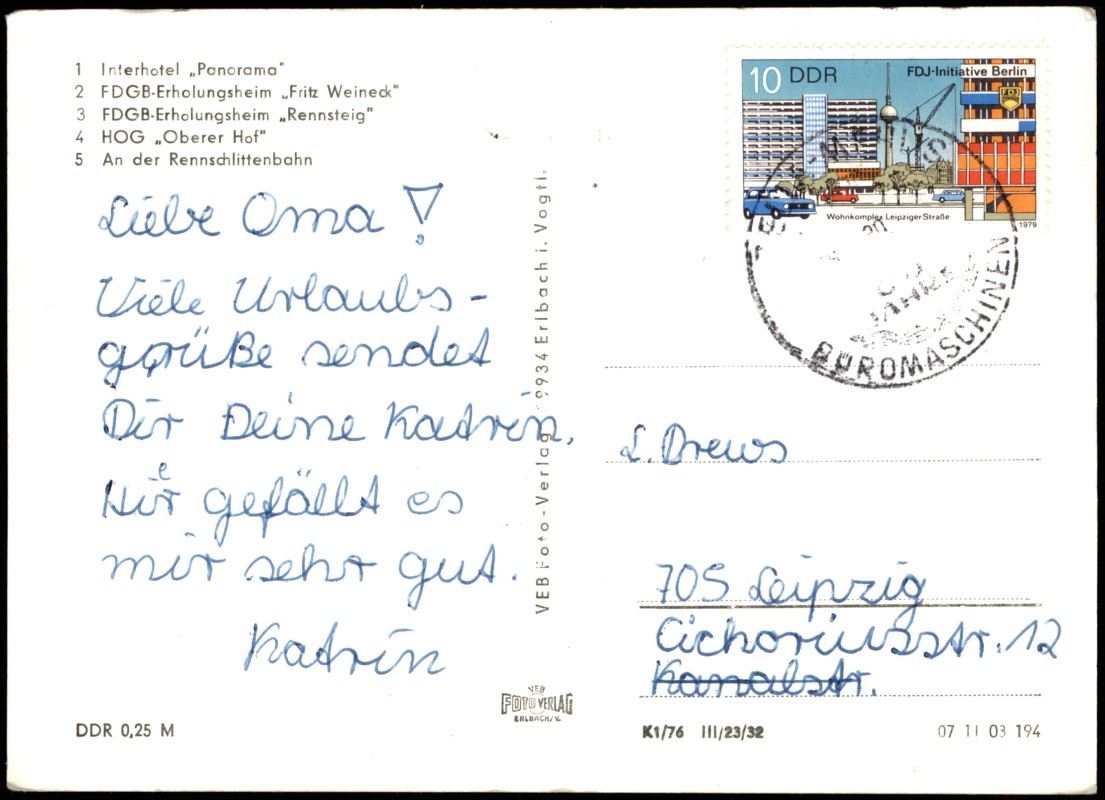 1 Interhotel „Panorama"
2 FDGB-Erholungsheim „Fritz Weineck"
3 FDGB-Erholungsheim „Rennsteig"
4 HOG „Oberer Hof"
5 An der Rennschlittenbahn
Liebe Oma!
Viele Urlaubs-
grüße sendet
Dir Deine Katrin.
Hier gefällt es
mir sehr gut.
Katrin
DDR 0,25 M
VEB Foto-Verlag 9934 Erlbach i. Vogtl.
VEB
FOTO VERLAG
ERLBACH/V.
10 DDR
FDJ-Initiative Berlin
FDJ
Wohnkomplex Leipziger Straße
1979
JAHRE
BÜROMASCHINEN
L. Drews
705 Leipzig
Cichoriusstr. 12
Kanalstr.
K1/76 III/23/32
07 11 03 194